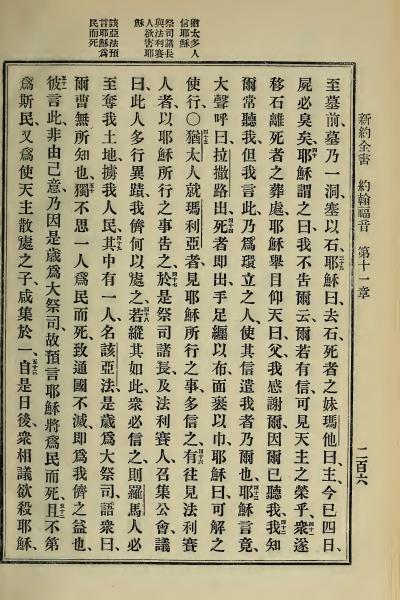 新約全書　約翰福音　第十一章　二百六
猶太多人
信耶穌
祭司諸長
與法利賽
人欲害耶
穌
該亞法預
言耶穌爲
民而死
至墓前、墓乃一洞、塞以石、三十九耶穌曰、去石、死者之妹瑪他曰、主、今已四日、
屍必臭矣、四十耶穌謂之曰、我不告爾云、爾若有信可見天主之榮乎、四十一衆遂
移石離死者之葬處、耶穌舉目仰天曰、父、我感謝爾、因爾已聽我、四十二我知
爾常聽我、但我言此、乃爲環立之人、使其信遣我者乃爾也、四十三耶穌言竟、
大聲呼曰、拉撒路出、四十四死者卽出、手足纏以布、面裹以巾、耶穌曰、可解之
使行、〇四十五猶太人就瑪利亞者、見耶穌所行之事多信之、四十六有往見法利賽
人者、以耶穌所行之事告之、四十七於是祭司諸長及法利賽人召集公會議
曰、此人多行異蹟、我儕何以處之、四十八若縱其如此、衆必信之、則羅馬人必
至奪我土地、擄我人民、四十九其中有一人名該亞法、是歲爲大祭司、語衆曰、
爾曹無所知也、五十獨不思一人爲民而死、致通國不滅、卽爲我儕之益也、
五十一彼言此非由己意、乃因是歲爲大祭司、故預言耶穌將爲民而死、五十二且不第
爲斯民、又爲使天主散處之子、咸集於一、五十三自是日後、衆相議欲殺耶穌、